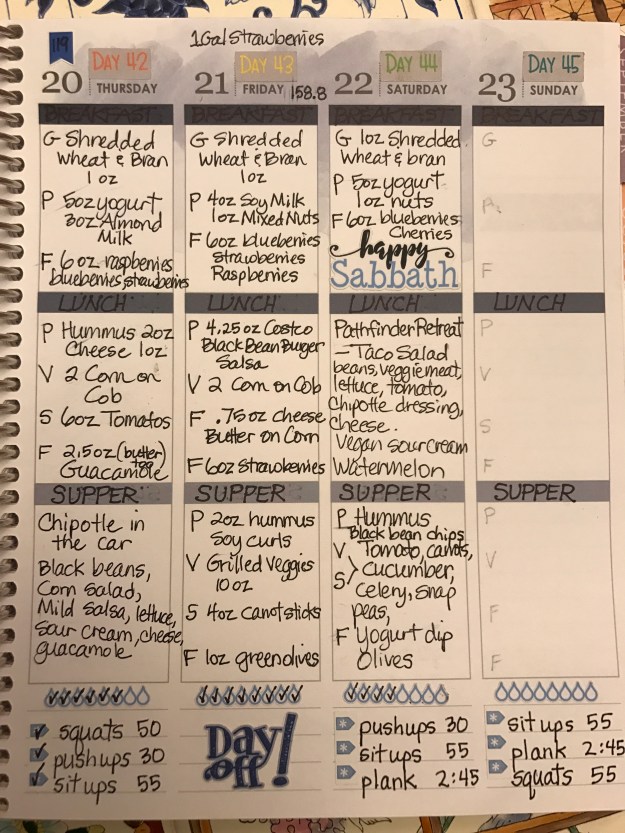 1Gal Strawberries
119
20 DAY 42
THURSDAY
BREAKFAST
G Shredded
Wheat & Bran
1 oz
P 5oz yogurt
3oz Almond
Milk
F 6 oz raspberries
blueberries, strawberries
LUNCH
P Hummus 2oz
Cheese 1oz
V 2 Corn on
Cob
S 6oz Tomatos
F 2.5oz (butter)
Guacamole
SUPPER
Chipotle in
the car
Black beans,
Corn Salad,
Mild Salsa, lettuce,
Sour cream, cheese,
guacamole
squats 50
pushups 30
sit ups 55
21 DAY 43
FRIDAY 158.8
BREAKFAST
G Shredded
Wheat & Bran
1oz
P 4oz Soy Milk
1oz Mixed Nuts
F 6oz blueberries
Strawberries
Raspberries
LUNCH
P 4.25 oz Costco
Black Bean Burger
Salsa
V 2 Corn on Cob
F .75 oz cheese
Butter on Corn
F 6oz Strawberries
SUPPER
P 2oz hummus
Soy curls
V Grilled Veggies
10 oz
S 4oz carrot sticks
F 1oz green olives
Day
off!
22 DAY 44
SATURDAY
BREAKFAST
G 1oz Shredded
Wheat & bran
P 5oz yogurt
1oz nuts
F 6oz blueberries
Cherries
happy
Sabbath
LUNCH
Pathfinder Retreat
- Taco Salad
beans, veggie meat,
lettuce, tomato,
Chipotle dressing,
cheese.
Vegan sour cream
Watermelon
SUPPER
P Hummus
Black bean chips
V Tomato, carrots,
S > cucumber,
Celery, snap
peas,
F Yogurt dip
Olives
pushups 30
sit ups 55
plank 2:45
23 DAY 45
SUNDAY
BREAKFAST
G
P
F
LUNCH
P
V
S
F
SUPPER
P
V
F
F
sit ups 55
plank 2:45
squats 55